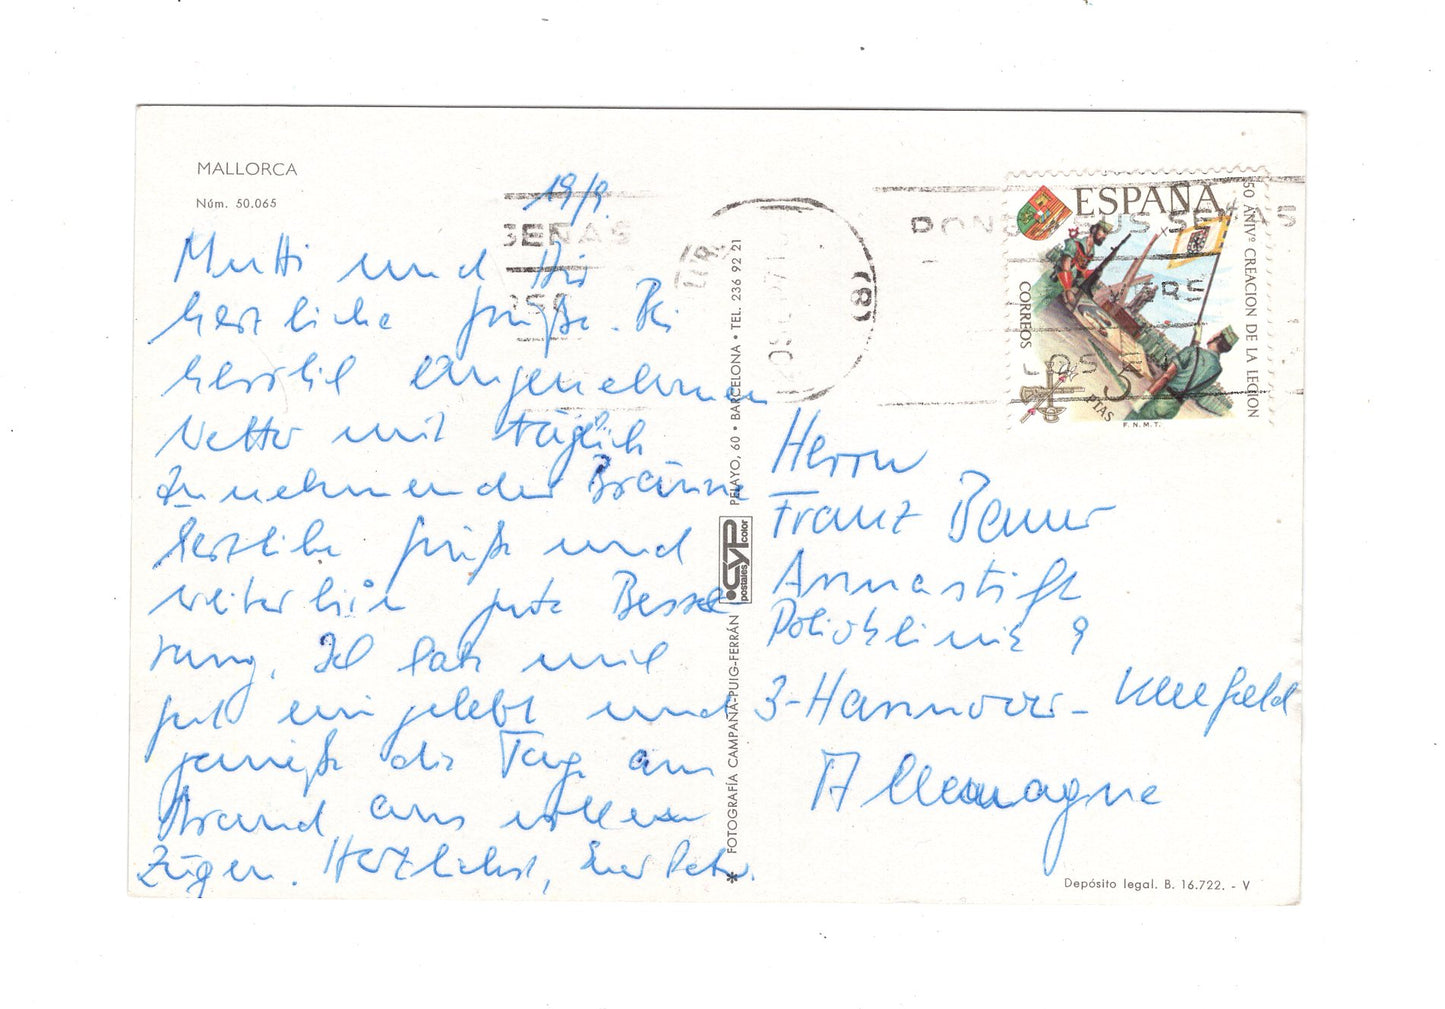 MALLORCA
Núm. 50.065
19/9.
Mutti und Dir
herzliche Grüße. Bei
herrlich angenehmen
Wetter mit täglich
zunehmender Bräune
herzliche Grüße und
weiterhin gute Besse
rung. Ich habe mich
gut eingelebt und
genieße die Tage am
Strand aus vollen
Zügen. Herzlichst, Euer Peter.
* FOTOGRAFÍA CAMPAÑA-PUIG-FERRÁN
CYP
postales color
PELAYO, 60 • BARCELONA • TEL. 236 92 21
SEÑAS
ESPAÑA
CORREOS
50 ANIVº CREACION DE LA LEGION
5 PTAS
F.N.M.T.
Herrn
Franz Bauer
Annastift
Poliklinik 9
3-Hannover-Kleefeld
Allemagne
Depósito legal. B. 16.722. - V